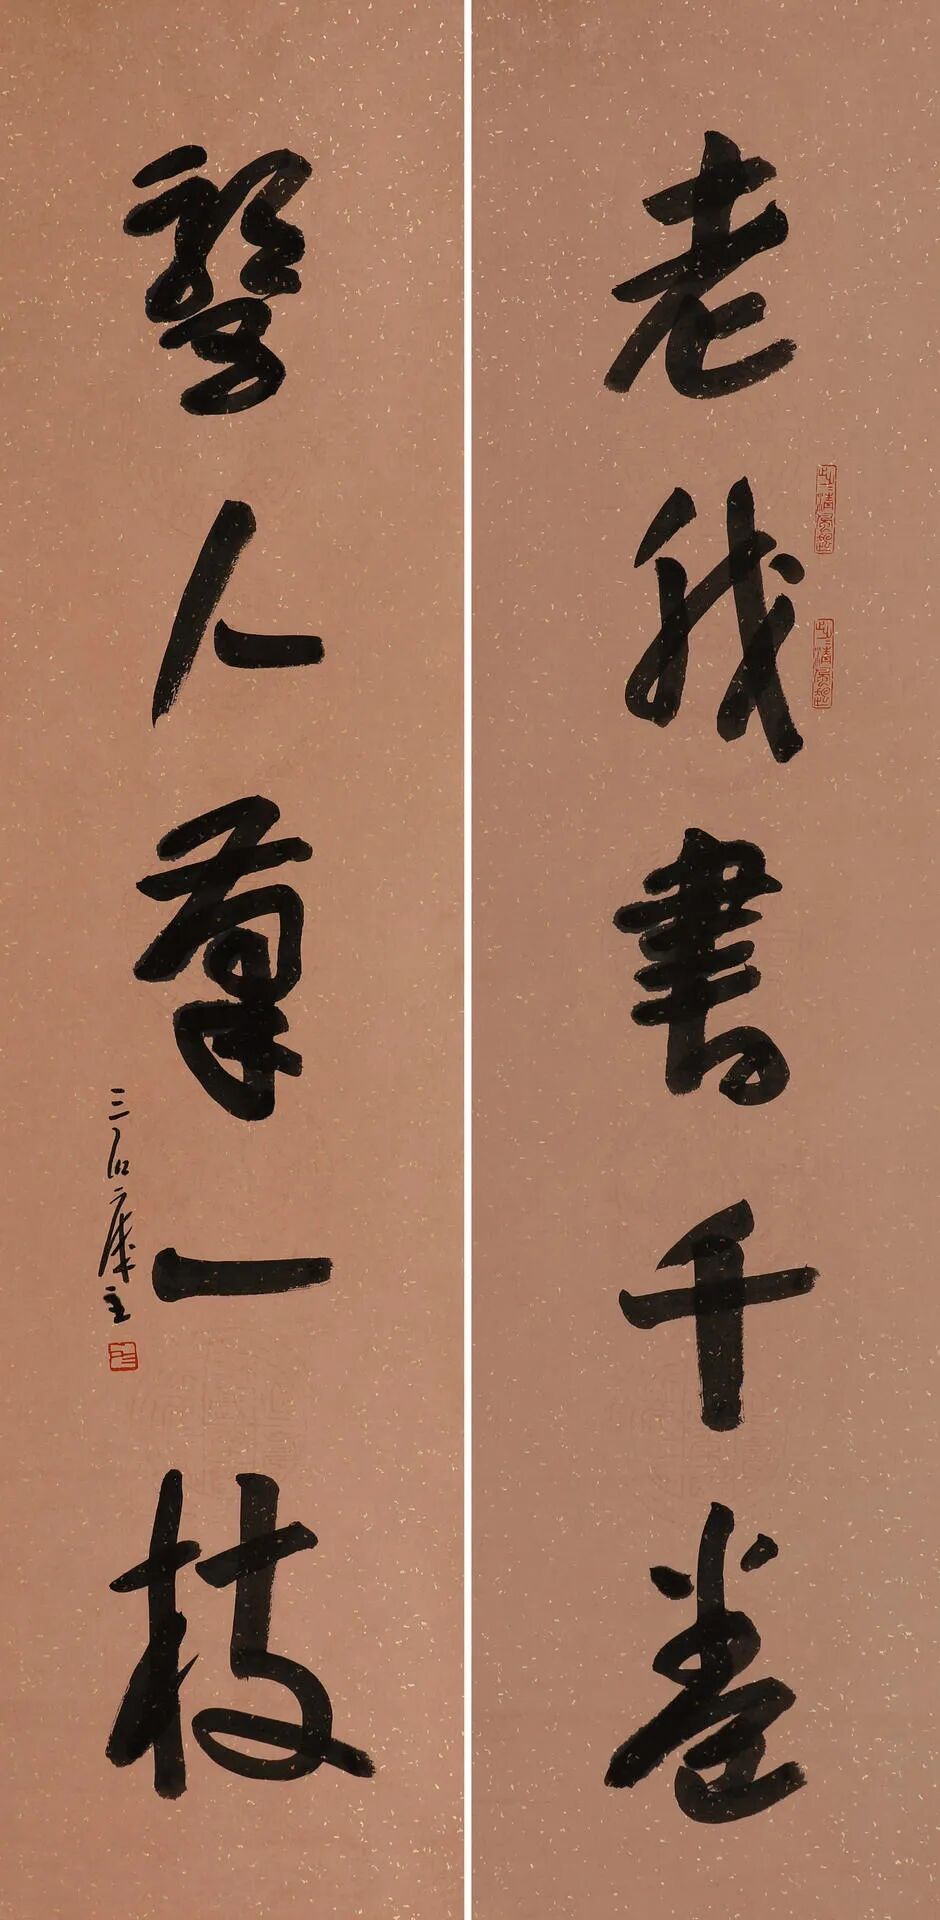 老我書千卷
驚人筆一枝
三石
主